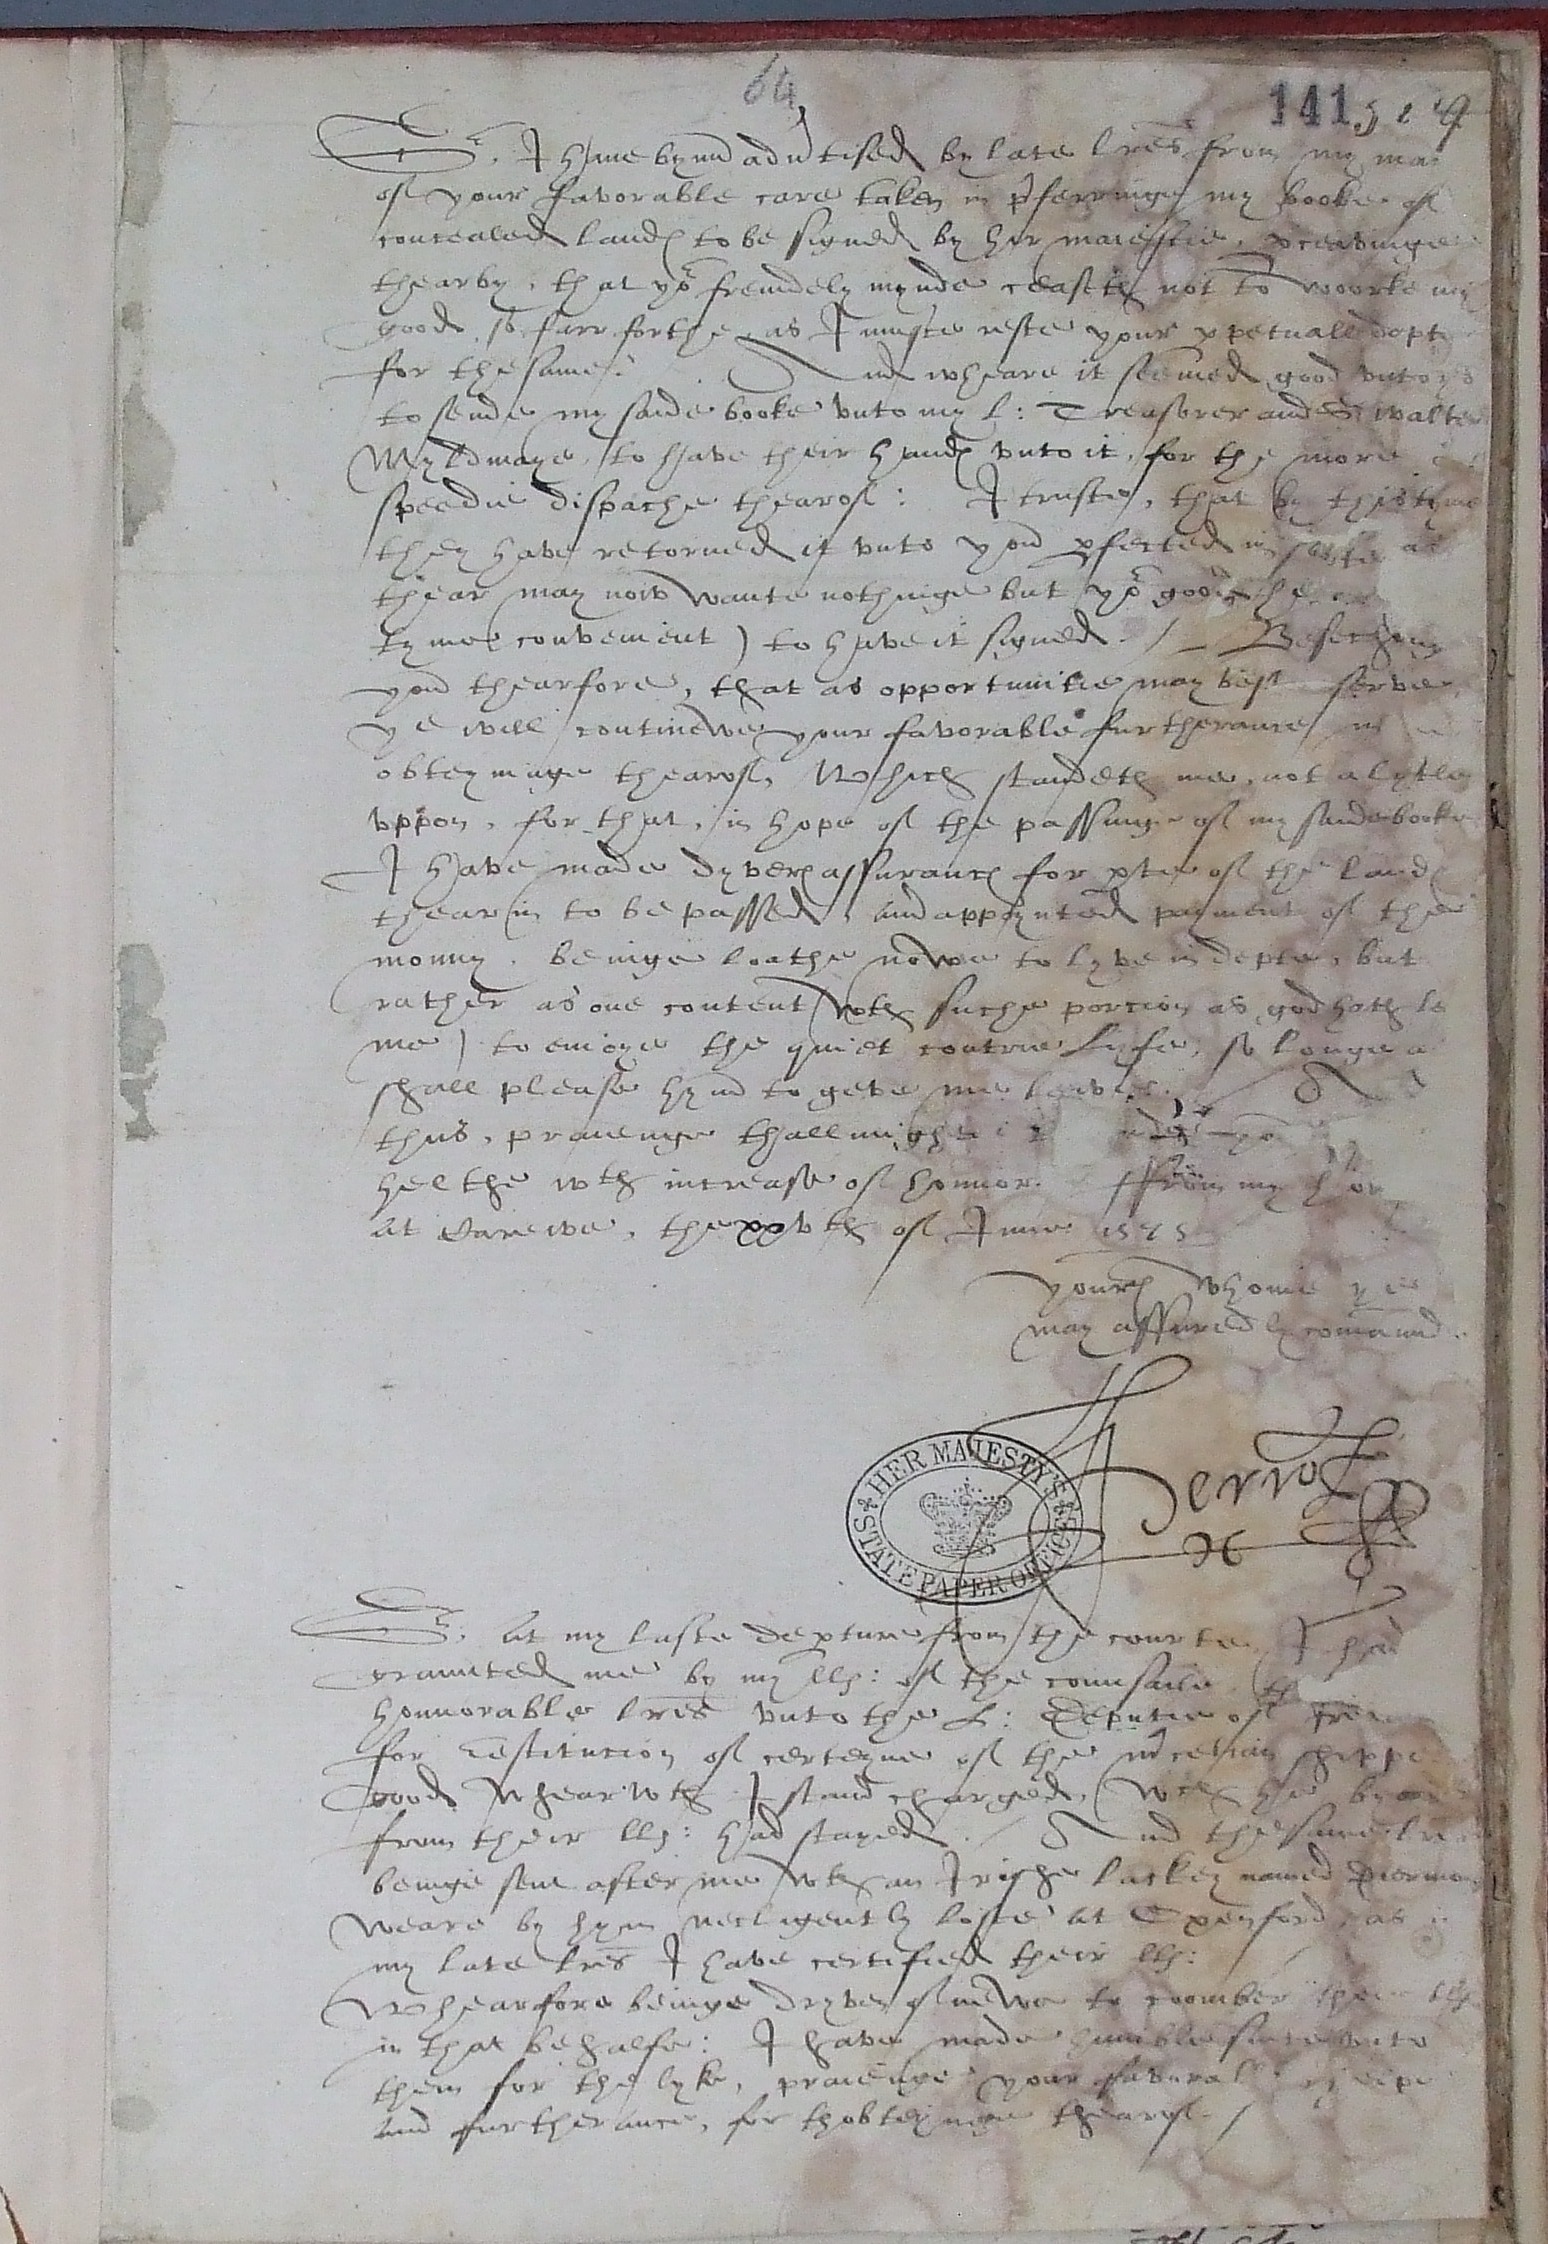 64
141
Sr. I have bynn adv'tised by late lres from my man
of your favorable care taken in p'ferringe my booke of
concealed landes to be signed by her maiestie. p'ceavinge
thearby, that yor freindely mynde ceaseth not to woorke my
good so farr forthe, as I muste reste your p'petuall dept
for the same. And wheare it seemed good vnto yo
to sende my saide booke vnto my L: Treasorer and Sr walter
Myldmaye, to have their handes vnto it, for the more
speedie dispache thearof: I truste, that by this tyme
they have retorned it vnto you p'fected in sorte as
thear may now wante nothinge but yor good
tyme convenient) to have it signed. / Besechinge
you thearfore, that as opportunitie may best serve,
ye will continewe your favorable furtherance in
obteyninge thearof, Which standeth me, not a lytle
vppon, for that, in hope of the passinge of my saide booke
I have made dyvers assurances for p'te of the landes
thearin to be passed, and appoynted paiment of the
monny. beinge loathe nowe to lyve in depte, but
rather as one content wth suche porcion as god hath le
me) to enioye the quiet contrie lyfe, so longe a
shall please hym to geve me leave. And
thus, praienge thallmightie yor
helthe wth increase of honnor. ffrom my howse
at Carewe, the xxvth of June 1575
youres whome ye
may assuredly comaund.
Perrot
HER MAJESTY'S
STATE PAPER OFFICE
Sr. At my laste dep'ture from the courte, I had
graunted me by my llp: of the counsaile, th
honnorable lres vnto the L: Deputie of
for restitucion of certeyne of the shippe
goodes whearwth I stand charged, wch he by
from their llp: had stayed. / And the same lres
beinge sent after me wth an Irishe lackey named Piermon
weare by hym necligently loste at Oxenford, as in
my late lres I have certified their llp:
Whearfore beinge dryven of newe to coomber their llp
in that behalfe: I have made humble sute vnto
them for the lyke, praienge your favorall
and furtherance, for thobteyninge thearof. /